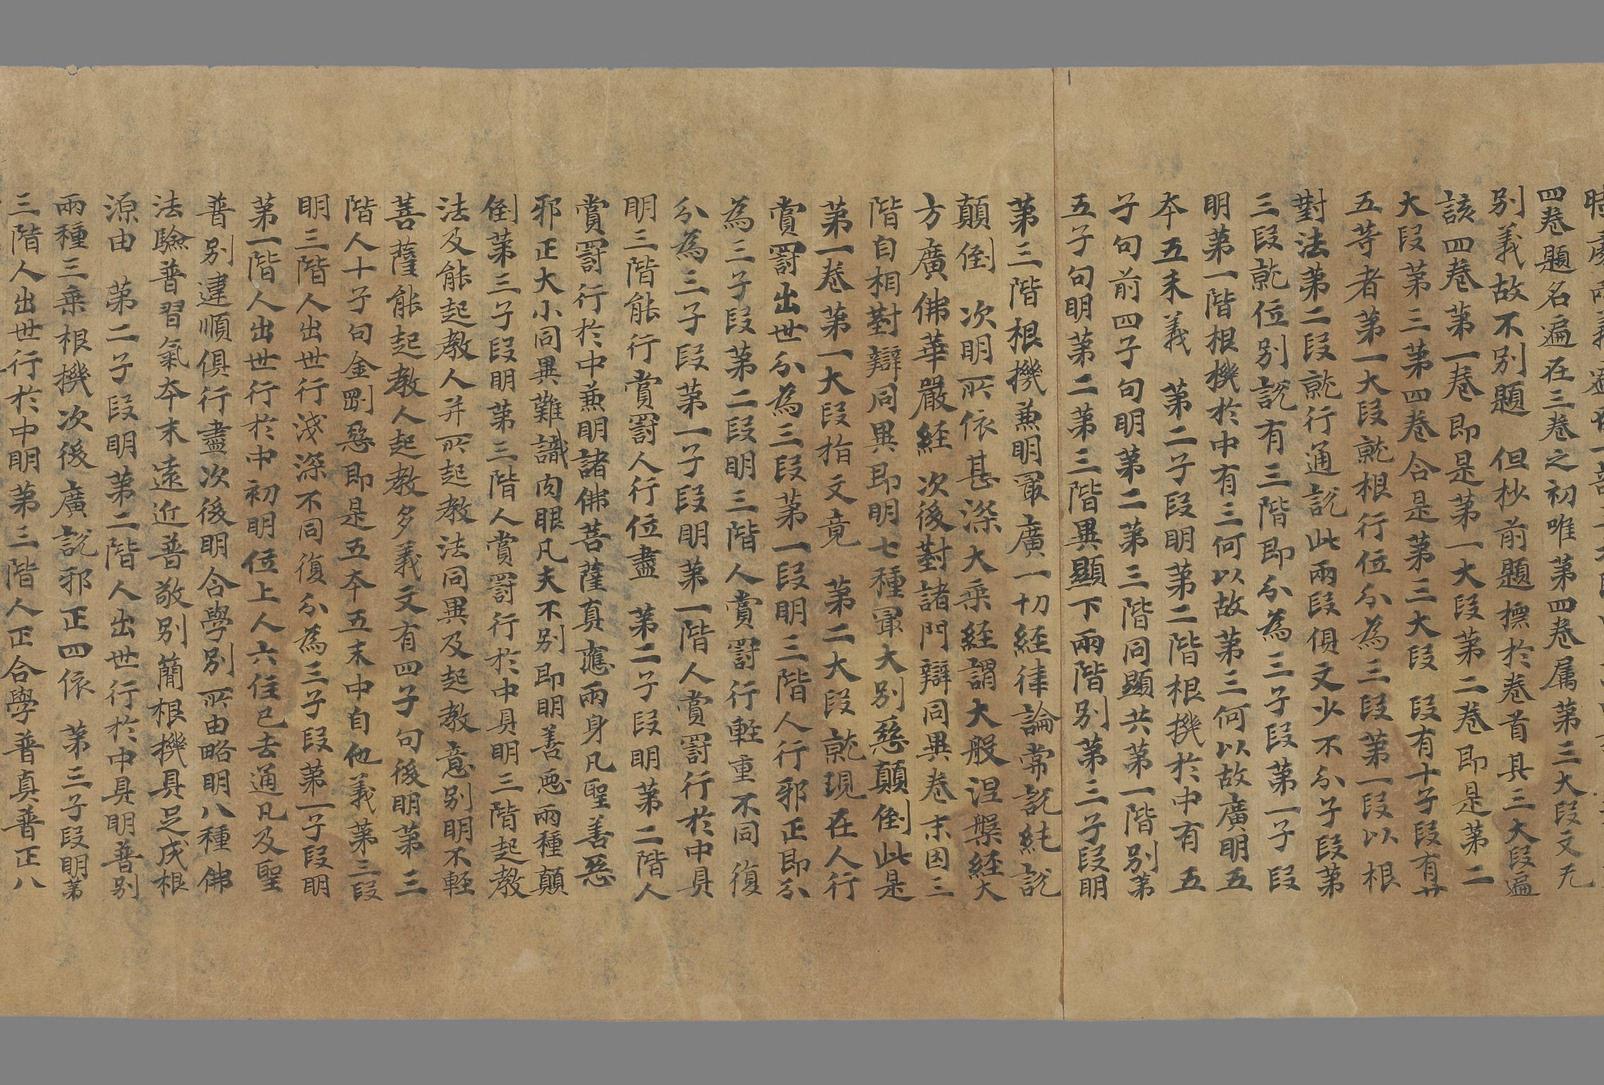 四卷題名遍在三卷之初唯第四卷属第三大段文无
別義故不別題　但抄前題摽於卷首其三大段遍
該四卷第一卷即是第一大段第二卷即是第二
大段第三第四卷合是第三大段　段有十子段有廿
五等者第一大段就根行位分為三段第一段以根
對法第二段就行通說此兩段俱文少不分子段第
三段就位別說有三階即分為三子段第一子段
明第一階根機於中有三何以故第三何以故廣明五
夲五末義　第二子段明第二階根機於中有五
子句前四子句明第二第三階同顯共第一階別第
五子句明第二第三階異顯下兩階別第三子段明
第三階根機兼明冣廣一切經律論常說純說
顛倒　次明所依甚深大乘經謂大般涅槃經大
方廣佛華嚴經　次後對諸門辯同異卷末因三
階自相對辯同異即明七種冣大別惡顛倒此是
第一卷第一大段指文竟　第二大段就現在人行
賞罸出世分為三段第一段明三階人行邪正即分
為三子段第二段明三階人賞罸行軽重不同復
分為三子段第一子段明第一階人賞罸行於中具
明三階能行賞罸人行位盡　第二子段明第二階人
賞罸行於中兼明諸佛菩薩真應兩身凡聖善惡
邪正大小同異難識肉眼凡夫不別即明善惡兩種顛
倒第三子段明第三階人賞罸行於中具明三階起教
法及能起教人并所起教法同異及起教意別明不軽
菩薩能起教人起教多義文有四子句後明第三
階人十子句金剛惡即是五夲五末中自他義第三段
明三階人出世行淺深不同復分為三子段第一子段明
第一階人出世行於中初明位上人六住已去通凡及聖
普別違順俱行盡次後明合學別所由略明八種佛
法驗普習氣夲末遠近普敬別簡根機具足成根
源由　第二子段明第二階人出世行於中具明普別
兩種三乘根機次後廣說邪正四依　第三子段明第
三階人出世行於中明第三階人正合學普真普正八